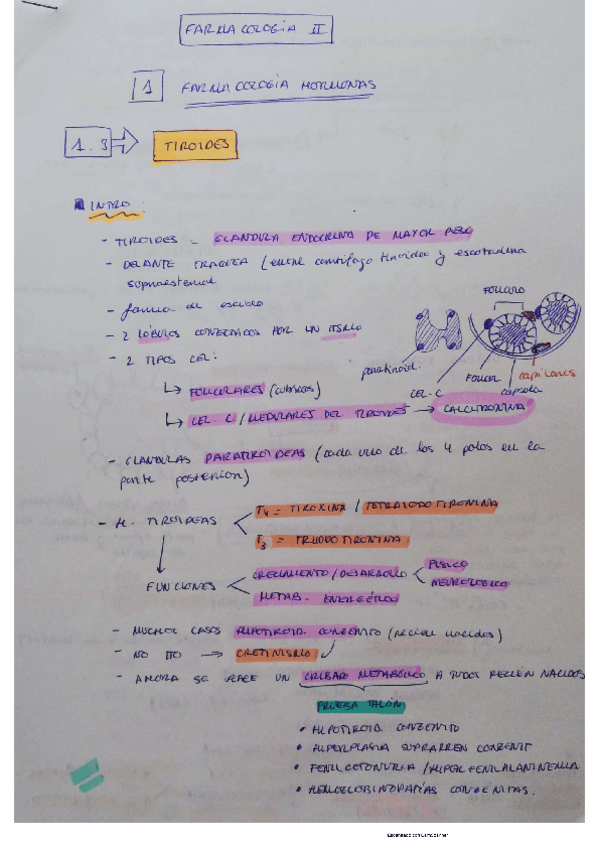 FARMACOLOGÍA II
1 FARMACOLOGÍA HORMONAS
1.3 TIROIDES
INTRO:
- TIROIDES = GLANDULA ENDOCRINA DE MAYOR PESO
- DELANTE TRAQUEA (entre cartílago tiroides y escotadura
supraesternal
- forma de escudo
- 2 LÓBULOS CONECTADOS POR UN ITSMO
- 2 TIPOS CEL:
FOLICULARES (cúbicas)
CEL-C / MEDULARES DEL TIROIDES → CALCITONINA
FOLICULO
paratiroid.
CEL-C
FOLICUL
capsula
capilares
- GLANDULAS PARATIROIDEAS (cada uno de los 4 polos en la
parte posterior)
- H. TIROIDEAS
T4 = TIROXINA / TETRAIODOTIRONINA
T3 = TRIIODOTIRONINA
FUNCIONES
CRECIMIENTO / DESARROLLO
FÍSICO
NEUROLÓGICO
METAB. ENERGÉTICO
- MUCHOS CASOS HIPOTIROID. CONGENITO (recien nacidos)
- NO TTO → CRETINISMO
- AHORA SE HACE UN CRIBADO METABÓLICO A TODOS RECIÉN NACIDOS
PRUEBA TALÓN
• HIPOTIROID CONGENITO
• HIPERPLASIA SUPRARREN CONGENIT
• FENILCETONURIA / HIPERFENILALANINEMIA
• HEMOGLOBINOPATÍAS CONGENITAS.
Escaneado con CamScanner